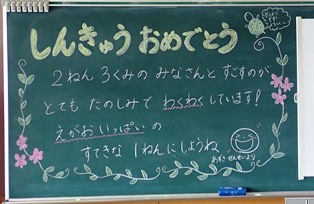 しんきゅう おめでとう
2ねん 3くみの みなさんと すごすのが
とても たのしみで わくわく しています!
えがお いっぱいの
すてきな 1ねんに しようね